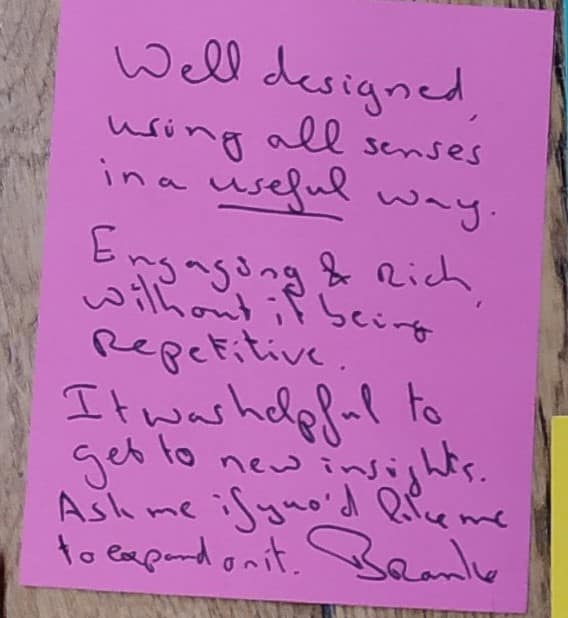 Well designed,
using all senses
in a useful way.
Engaging & Rich,
without it being
Repetitive.
It was helpful to
get to new insights.
Ask me if you'd like me
to expand on it.